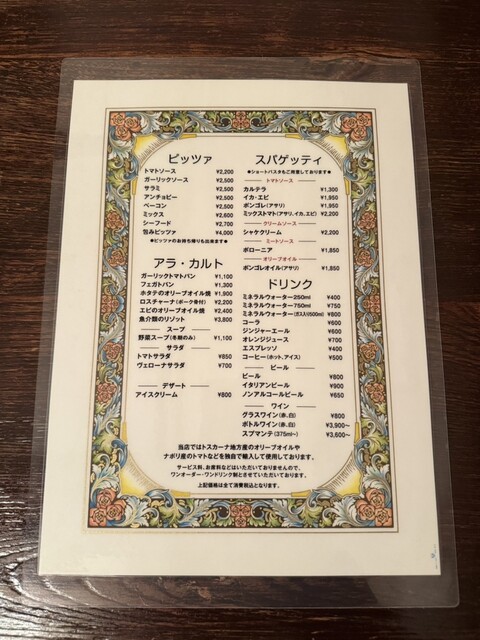 ピッツァ
トマトソース ¥2,200
ガーリックソース ¥2,500
サラミ ¥2,500
アンチョビー ¥2,500
ベーコン ¥2,500
ミックス ¥2,600
シーフード ¥2,700
包みピッツァ ¥4,000
●ピッツァのお持ち帰りも出来ます●
アラ・カルト
ガーリックトマトパン ¥1,100
フェガトパン ¥1,300
ホタテのオリーブオイル焼 ¥1,900
ロスチャーナ(ポーク骨付) ¥2,200
エビのオリーブオイル焼 ¥2,400
魚介類のリゾット ¥3,800
スープ
野菜スープ(冬期のみ) ¥1,100
サラダ
トマトサラダ ¥850
ヴェローナサラダ ¥700
デザート
アイスクリーム ¥800
スパゲッティ
●ショートパスタもご用意しております●
トマトソース
カルテラ ¥1,300
イカ・エビ ¥1,950
ボンゴレ(アサリ) ¥1,950
ミックストマト(アサリ,イカ,エビ) ¥2,200
クリームソース
シャケクリーム ¥2,200
ミートソース
ボローニア ¥1,850
オリーブオイル
ボンゴレオイル(アサリ) ¥1,850
ドリンク
ミネラルウォーター250ml ¥400
ミネラルウォーター750ml ¥750
ミネラルウォーター(ガス入り500ml) ¥800
コーラ ¥600
ジンジャーエール ¥600
オレンジジュース ¥700
エスプレッソ ¥400
コーヒー(ホット,アイス) ¥500
ビール
ビール ¥800
イタリアンビール ¥900
ノンアルコールビール ¥650
ワイン
グラスワイン(赤,白) ¥800
ボトルワイン(赤,白) ¥3,900～
スプマンテ(375ml～) ¥3,600～
当店ではトスカーナ地方産のオリーブオイルや
ナポリ産のトマトなどを独自で輸入して使用しております。
サービス料、お席料などはいただいておりませんので、
ワンオーダー・ワンドリンク制とさせていただいております。
上記価格は全て消費税込となります。